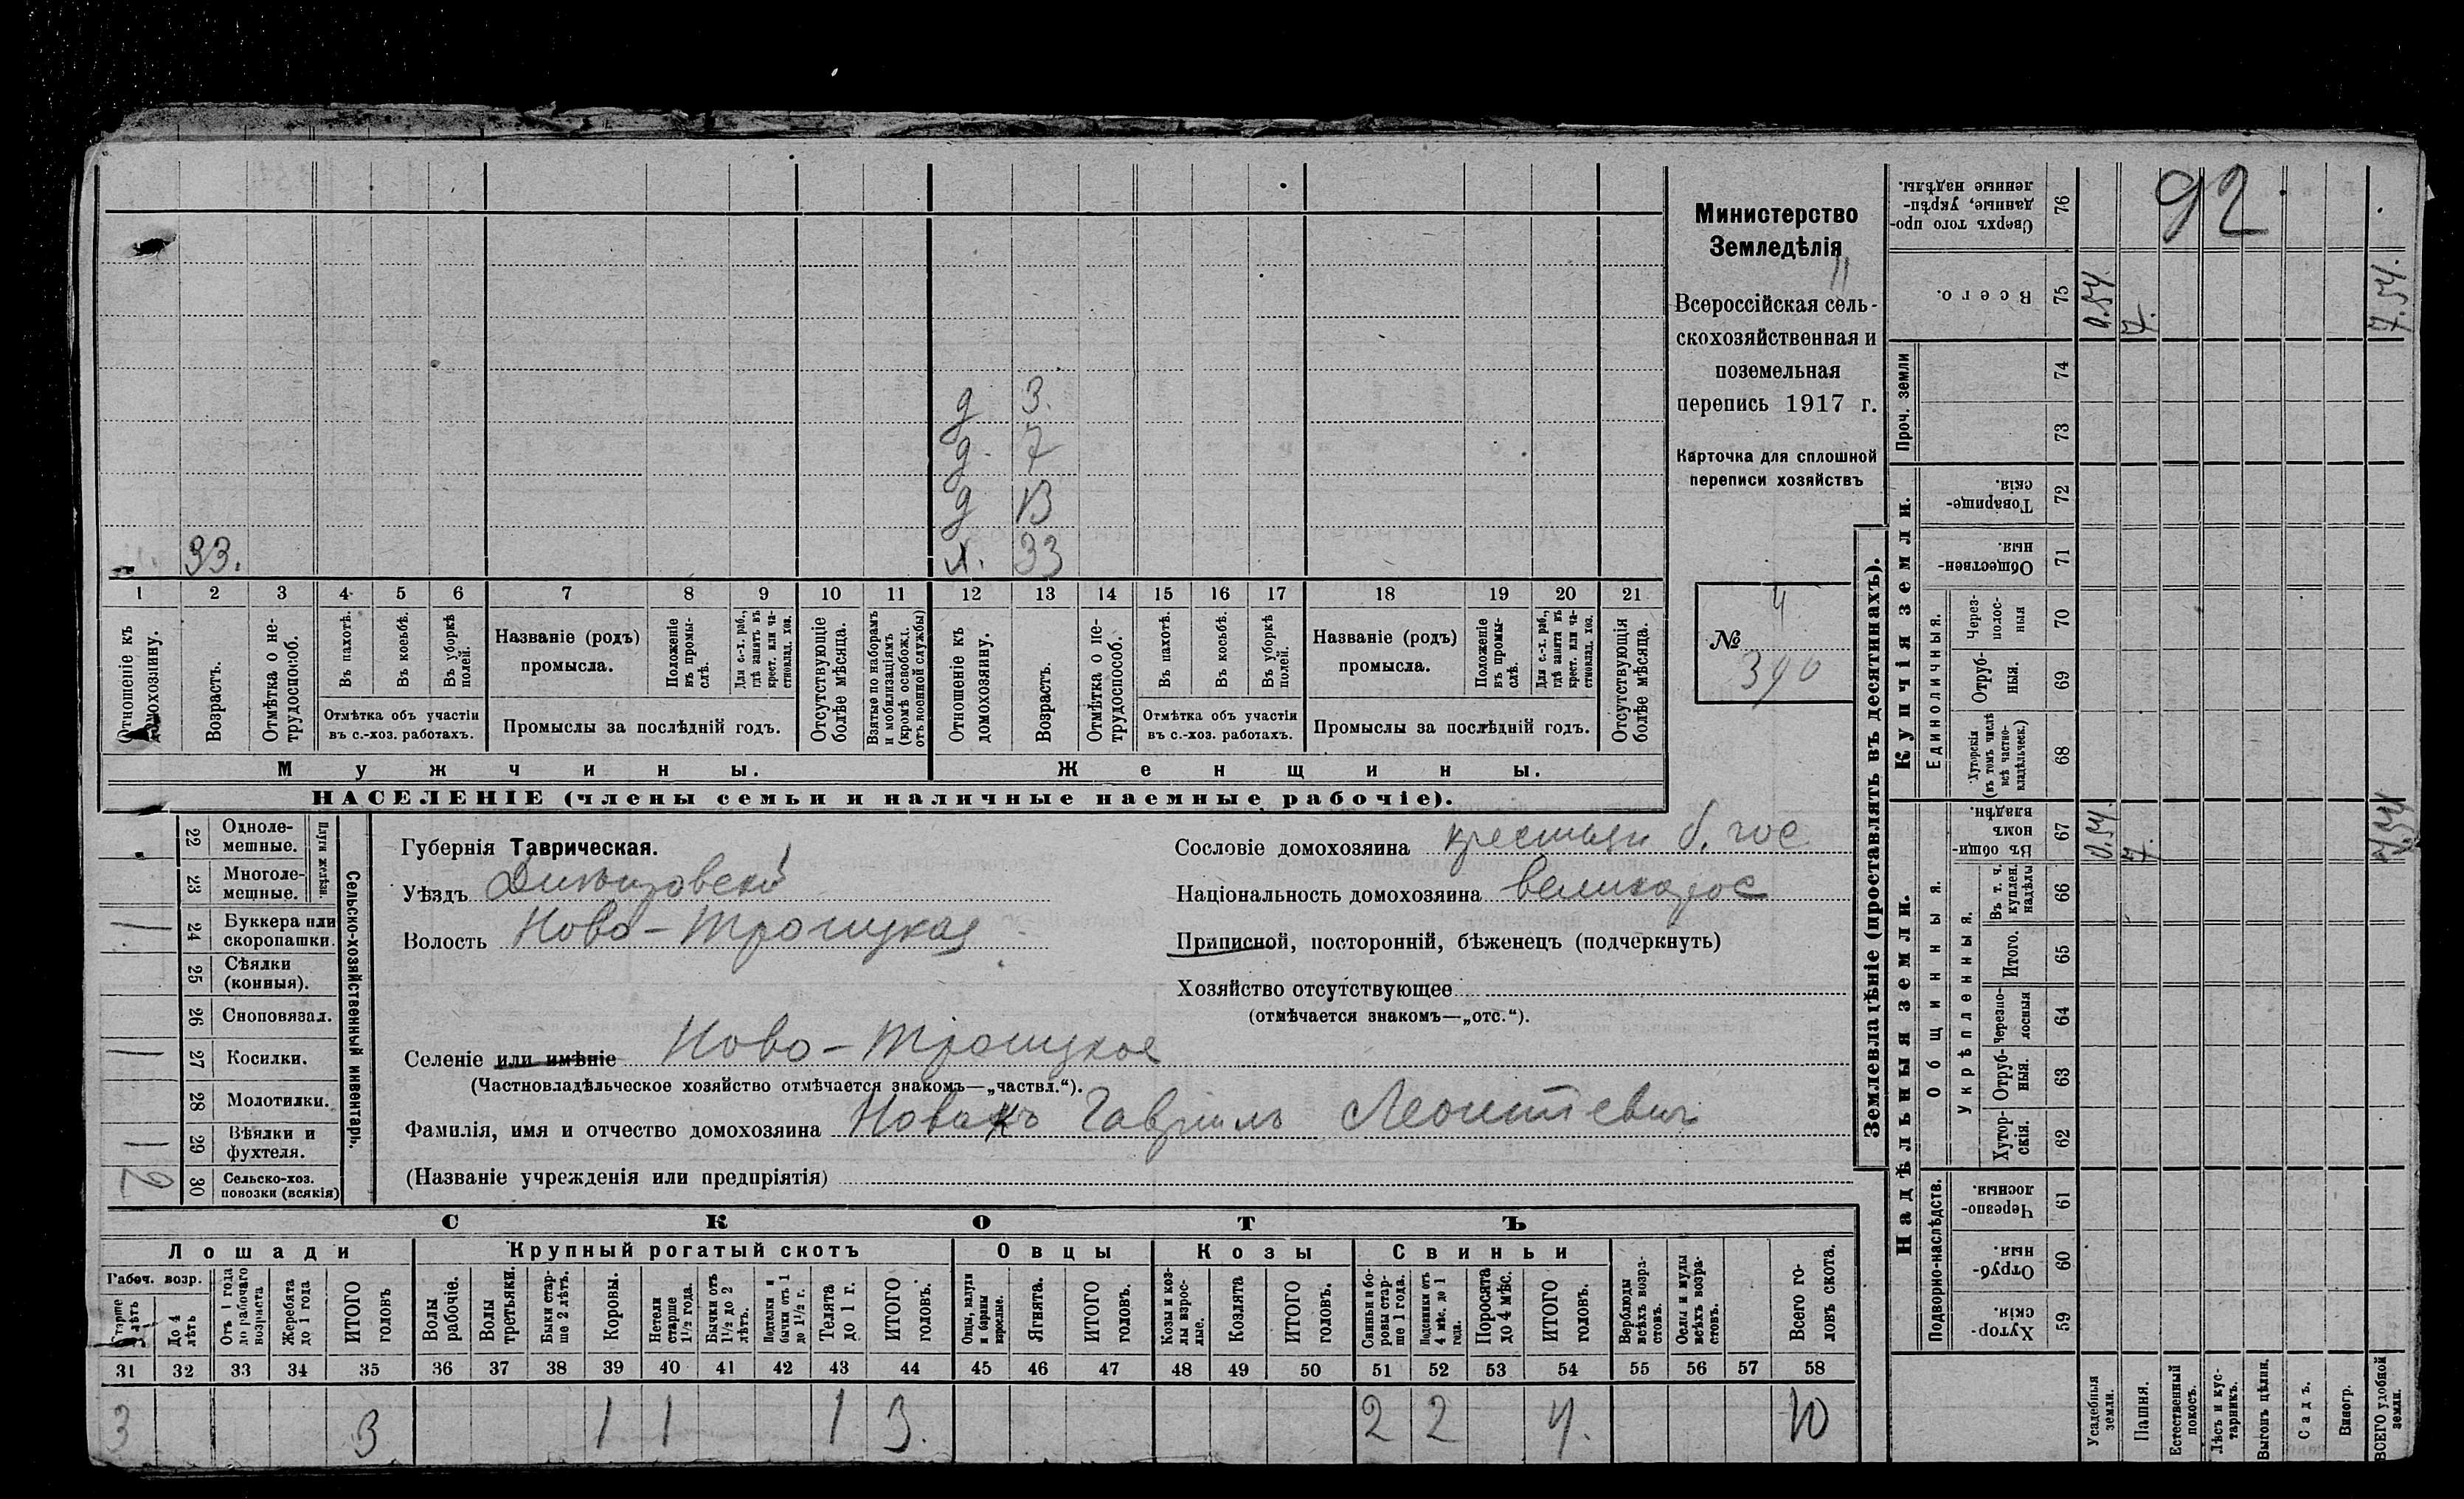 92
Министерство
Земледѣлія
Всероссійская сель-
скохозяйственная и
поземельная
перепись 1917 г.
Карточка для сплошной
переписи хозяйствъ
№ 4
390
д 3.
д. 7
д 13
33. ж. 33
1 2 3 4 5 6 7 8 9 10 11 12 13 14 15 16 17 18 19 20 21
Отношеніе къ домохозяину.
Возрастъ.
Отмѣтка о не-трудоспособ.
Въ пахотѣ.
Въ косьбѣ.
Въ уборкѣ полей.
Отмѣтка объ участіи въ с.-хоз. работахъ.
Названіе (родъ) промысла.
Положеніе въ промы-слѣ.
Для с.-х. раб., гдѣ занятъ въ крест. или ча-стновлад. хоз.
Промыслы за послѣдній годъ.
Отсутствующіе болѣе мѣсяца.
Взятые по наборамъ и мобилизаціямъ (кромѣ освобожд. отъ военной службы)
Отношеніе къ домохозяину.
Возрастъ.
Отмѣтка о не-трудоспособ.
Въ пахотѣ.
Въ косьбѣ.
Въ уборкѣ полей.
Отмѣтка объ участіи въ с.-хоз. работахъ.
Названіе (родъ) промысла.
Положеніе въ промы-слѣ.
Для с.-х. раб., гдѣ занята въ крест. или ча-стновлад. хоз.
Промыслы за послѣдній годъ.
Отсутствующія болѣе мѣсяца.
Мужчины.
Женщины.
НАСЕЛЕНІЕ (члены семьи и наличные наемные рабочіе).
Сельско-хозяйственный инвентарь.
Плуги желѣзн.
22 Одноле-мешные.
23 Многоле-мешные.
24 Буккера или скоропашки. 1
25 Сѣялки (конныя).
26 Сноповязал.
27 Косилки. 1
28 Молотилки.
29 Вѣялки и фухтеля. 1
30 Сельско-хоз. повозки (всякія) 2
Губернія Таврическая.
Уѣздъ Днѣпровскій
Волость Ново-Троицкая
Сословіе домохозяина крестьян б. гос
Національность домохозяина великорос
Приписной, посторонній, бѣженецъ (подчеркнуть)
Хозяйство отсутствующее
(отмѣчается знакомъ—„отс.“).
Селеніе или имѣніе Ново-Троицкое
(Частновладѣльческое хозяйство отмѣчается знакомъ—„частвл.“).
Фамилія, имя и отчество домохозяина Новакъ Гавриилъ Леонтіевич
(Названіе учрежденія или предпріятія)
СКОТЪ
Лошади
Крупный рогатый скотъ
Овцы
Козы
Свиньи
Рабоч. возр.
Старше 4 лѣтъ
До 4 лѣтъ
Отъ 1 года до рабочаго возраста
Жеребята до 1 года
ИТОГО головъ
Волы рабочіе.
Волы третьяки.
Быки стар-ше 2 лѣтъ.
Коровы.
Нетели старше 1½ года.
Бычки отъ 1½ до 2 лѣтъ.
Подтелки и бычки отъ 1 до 1½ г.
Телята до 1 г.
ИТОГО головъ.
Овцы, валухи и бараны взрослые.
Ягнята.
ИТОГО головъ.
Козы и коз-лы взрос-лые.
Козлята
ИТОГО головъ.
Свиньи и бо-ровы стар-ше 1 года.
Подсвинки отъ 4 мѣс. до 1 года.
Поросята до 4 мѣс.
ИТОГО головъ.
Верблюды всѣхъ возра-стовъ.
Ослы и мулы всѣхъ возра-стовъ.
Всего го-ловъ скота.
31 32 33 34 35 36 37 38 39 40 41 42 43 44 45 46 47 48 49 50 51 52 53 54 55 56 57 58
3 3 1 1 1 3. 2 2 4. 10
Землевладѣніе (проставлять въ десятинахъ).
Надѣльныя земли.
Купчія земли.
Проч. земли
Подворно-наслѣдств.
Общинныя.
Укрѣпленныя.
Единоличныя.
76 Сверхъ того про-данные, укрѣп-ленные надѣлы.
75 Всего. 0.54. 7. 7.54.
74
73
72 Товарище-скія.
71 Обществен-ныя.
70 Через-полос-ныя
69 Отруб-ныя.
68 Хуторскія (въ томъ числѣ всѣ частно-владѣльческ.)
67 Въ общи-номъ владѣн. 0.54. 7. 7.54
66 Въ т. ч. куплен. надѣлы
65 Итого.
64 Черезпо-лосныя
63 Отруб-ныя.
62 Хутор-скія.
61 Черезпо-лосныя.
60 Отруб-ныя.
59 Хутор-скія.
Усадебныя земли.
Пашня.
Естественный покосъ.
Лѣсъ и кус-тарникъ.
Выгонъ цѣлин.
Садъ.
Виногр.
ВСЕГО удобной земли.